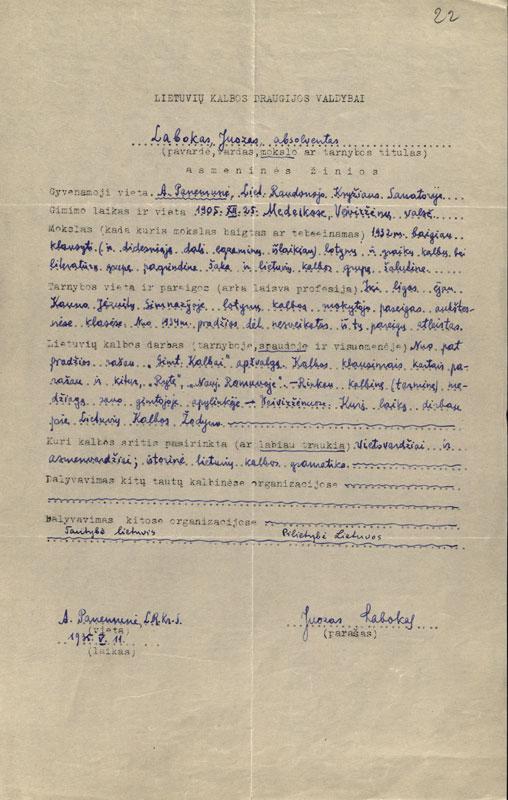 22
LIETUVIŲ KALBOS DRAUGIJOS VALDYBAI
Labokas, Juozas, absolventas
(pavardė, vardas, mokslo ar tarnybos titulas)
asmeninės žinios
Gyvenamoji vieta A. Panemunė, Liet. Raudonojo Kryžiaus Sanatorija
Gimimo laikas ir vieta 1905. XII. 25. Medeikose, Veiviržėnų valsč.
Mokslas (kada kuris mokslas baigtas ar tebeeinamas) 1932 m. baigiau
klausyti (ir didesniąją dalį egzaminų išlaikiau) lotynų ir graikų kalbų bei
literatūros grupę pagrindine šaka ir lietuvių kalbos grupę šalutine.
Tarnybos vieta ir pareigos (arba laisva profesija) Iki ligos ėjau
Kauno Jėzuitų Gimnazijoje lotynų kalbos mokytojo pareigas aukštes-
nėse klasėse. Nuo 1934 m. pradžios dėl nesveikatos iš tų pareigų atleistas.
Lietuvių kalbos darbas (tarnyboje, spaudoje ir visuomenėje) Nuo pat
pradžios rašau „Gimt. Kalbai" apžvalgą. Kalbos klausimais kartais pa-
rašau ir kitur, „Ryte", „Nauj. Romuvoje". – Rinkau kalbinę (terminų) me-
džiagą savo gimtojoje apylinkėje – Veiviržėnuose. Kurį laiką dirbau
prie Lietuvių Kalbos Žodyno.
Kuri kalbos sritis pasirinkta (ar labiau traukia) Vietovardžiai ir
asmenvardžiai; istorinė lietuvių kalbos gramatika.
Dalyvavimas kitų tautų kalbinėse organizacijose
Dalyvavimas kitose organizacijose
Tautybė lietuvis Pilietybė Lietuvos
A. Panemunė, L.R.Kr.S.
(vieta)
1935. V. 11.
(laikas)
Juozas Labokas
(parašas)